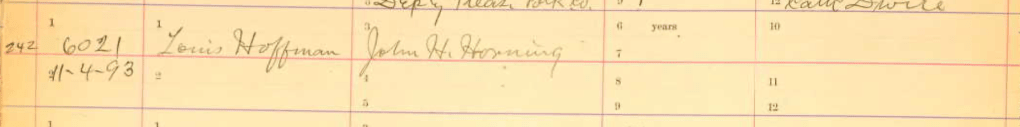 Dep'y Treas. Polk Co. 9 12
1 1 3 6 years 10
242 6021 Louis Hoffman John H. Horning 7
11-4-93 2 4 8 11
5 9 12
1 1